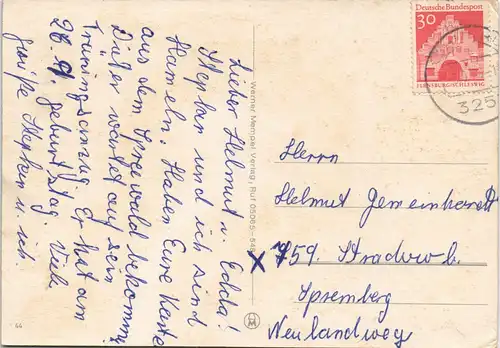 Lieber Helmut u. Edda!
Stephan und ich sind
Hameln. Haben Eure Karte
aus dem Spreewald bekommen
Dieter wartet auf sein
Trainingsanzug. Er hat am
28. 9. geburtstag. Viele
Grüße Stephan u. ich.
Werner Mempel Verlag | Ruf 05065-548
44
Deutsche Bundespost
30
FLENSBURG/SCHLESWIG
325
Herrn
Helmut Gemeinhardt
X 759. Stradow b.
Spremberg
Neulandweg